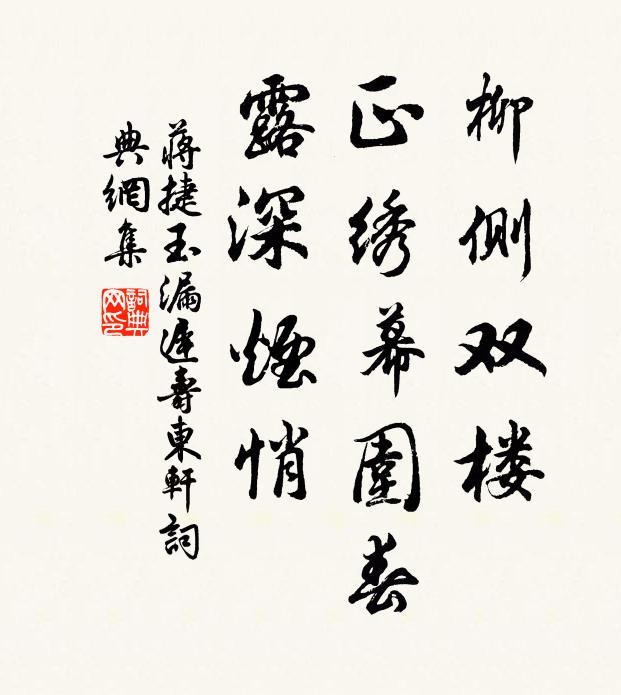 柳侧双楼
正绣幕围春
露深煙悄
蒋捷玉漏遲壽東軒詞
典網集
詞典网印